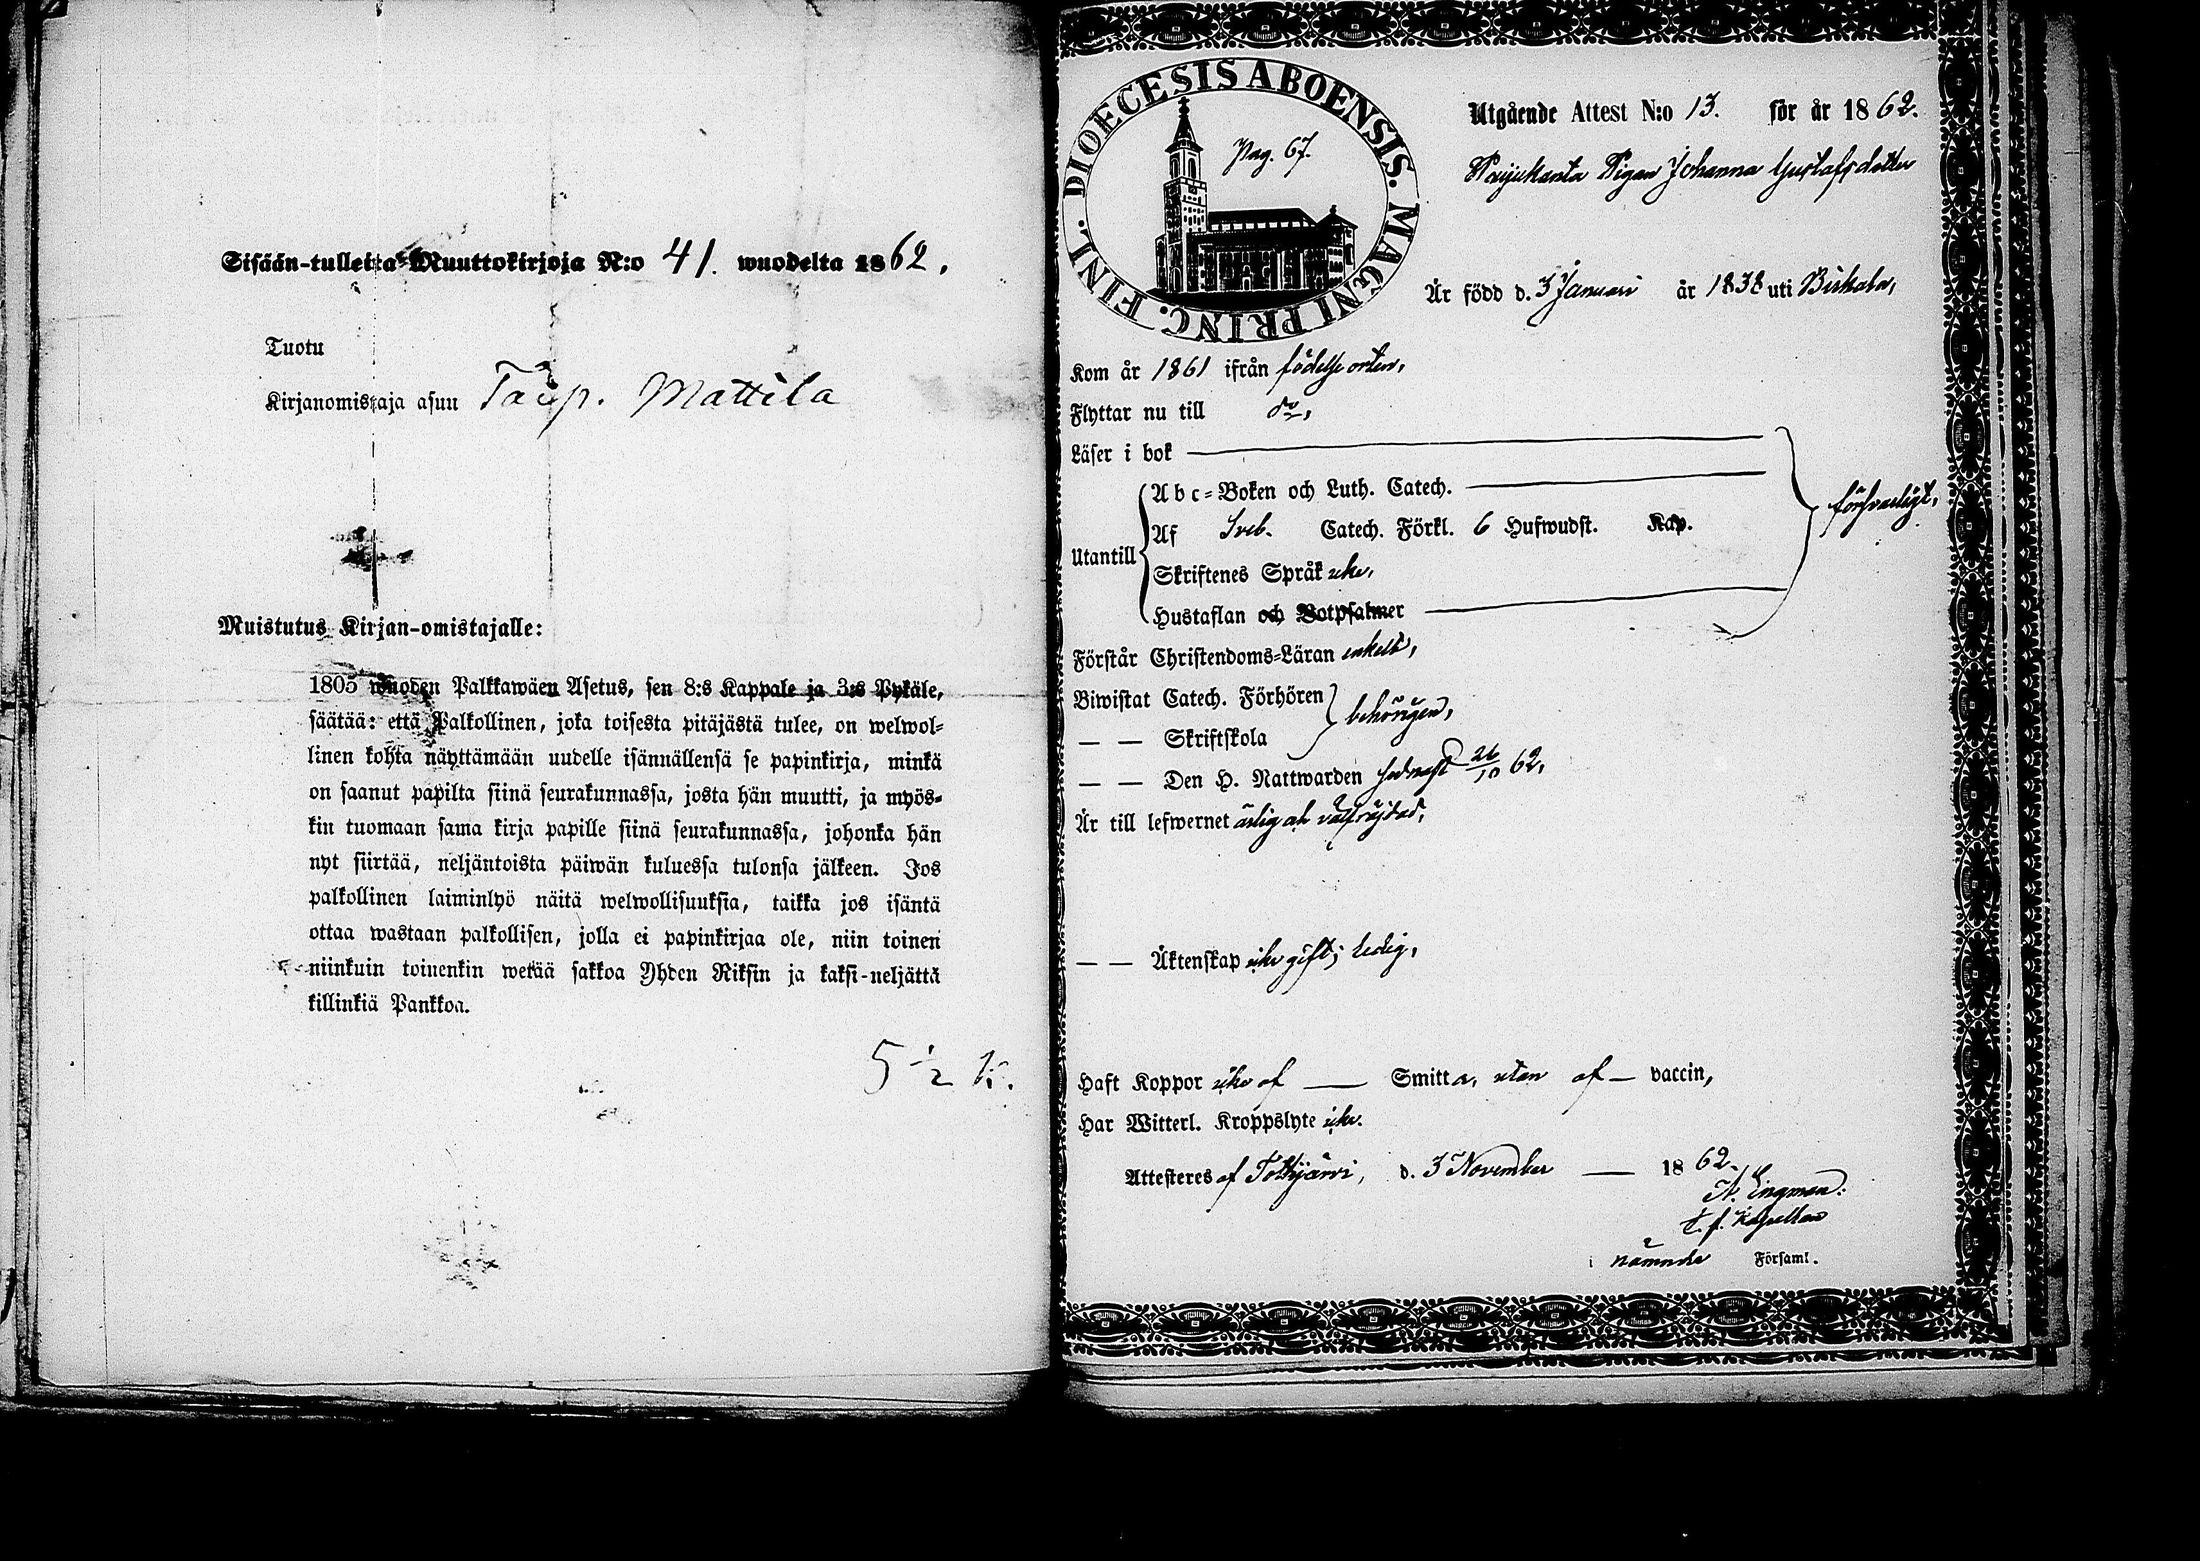 Sisään-tulleita Muuttokirjoja N:o 41. wuodelta 1862.
Tuotu
Kirjanomistaja asuu Taip. Mattila
Muistutus Kirjan-omistajalle:
1805 wuoden Palkkawäen Asetus, sen 8:s Kappale ja 3:s Pykäle,
säätää: että Palkollinen, joka toisesta pitäjästä tulee, on welwol-
linen kohta näyttämään uudelle isännällensä se papinkirja, minkä
on saanut papilta siinä seurakunnassa, josta hän muutti, ja myös-
kin tuomaan sama kirja papille siinä seurakunnassa, johonka hän
nyt siirtää, neljäntoista päiwän kuluessa tulonsa jälkeen. Jos
palkollinen laiminlyö näitä welwollisuuksia, taikka jos isäntä
ottaa wastaan palkollisen, jolla ei papinkirjaa ole, niin toinen
niinkuin toinenkin wetää sakkoa Yhden Riksin ja kaksi-neljättä
killinkiä Pankkoa.
5 1/2 K.
DIOECESIS ABOENSIS. MAGNI PRINC. FINL.
Pag. 67.
Utgående Attest N:o 13. för år 1862.
Pigan Johanna Gustafsdotter
Är född d. 3 Januari år 1838 uti Birkala,
Kom år 1861 ifrån födelse orten,
Flyttar nu till do,
Läser i bok
Utantill
Abc-Boken och Luth. Catech.
Af Sveb. Catech. Förkl. 6 Hufwudst. Kap.
Skriftenes Språk icke,
Hustaflan och Botpsalmer
försvarligt,
Förstår Christendoms-Läran enkelt,
Biwistat Catech. Förhören
behörigen,
— — Skriftskola
— — Den H. Nattwarden sednast 26/10 62,
Är till lefwernet ärlig och välfräjdad,
— — Äktenskap icke gift; ledig,
Haft Koppor icke af — Smitta, utan af — vaccin,
Har Witterl. Kroppslyte icke.
Attesteres af Tottijärvi, d. 3 November — 1862.
A. Engman:
t. f. Kapellan
i nämnde Församl.